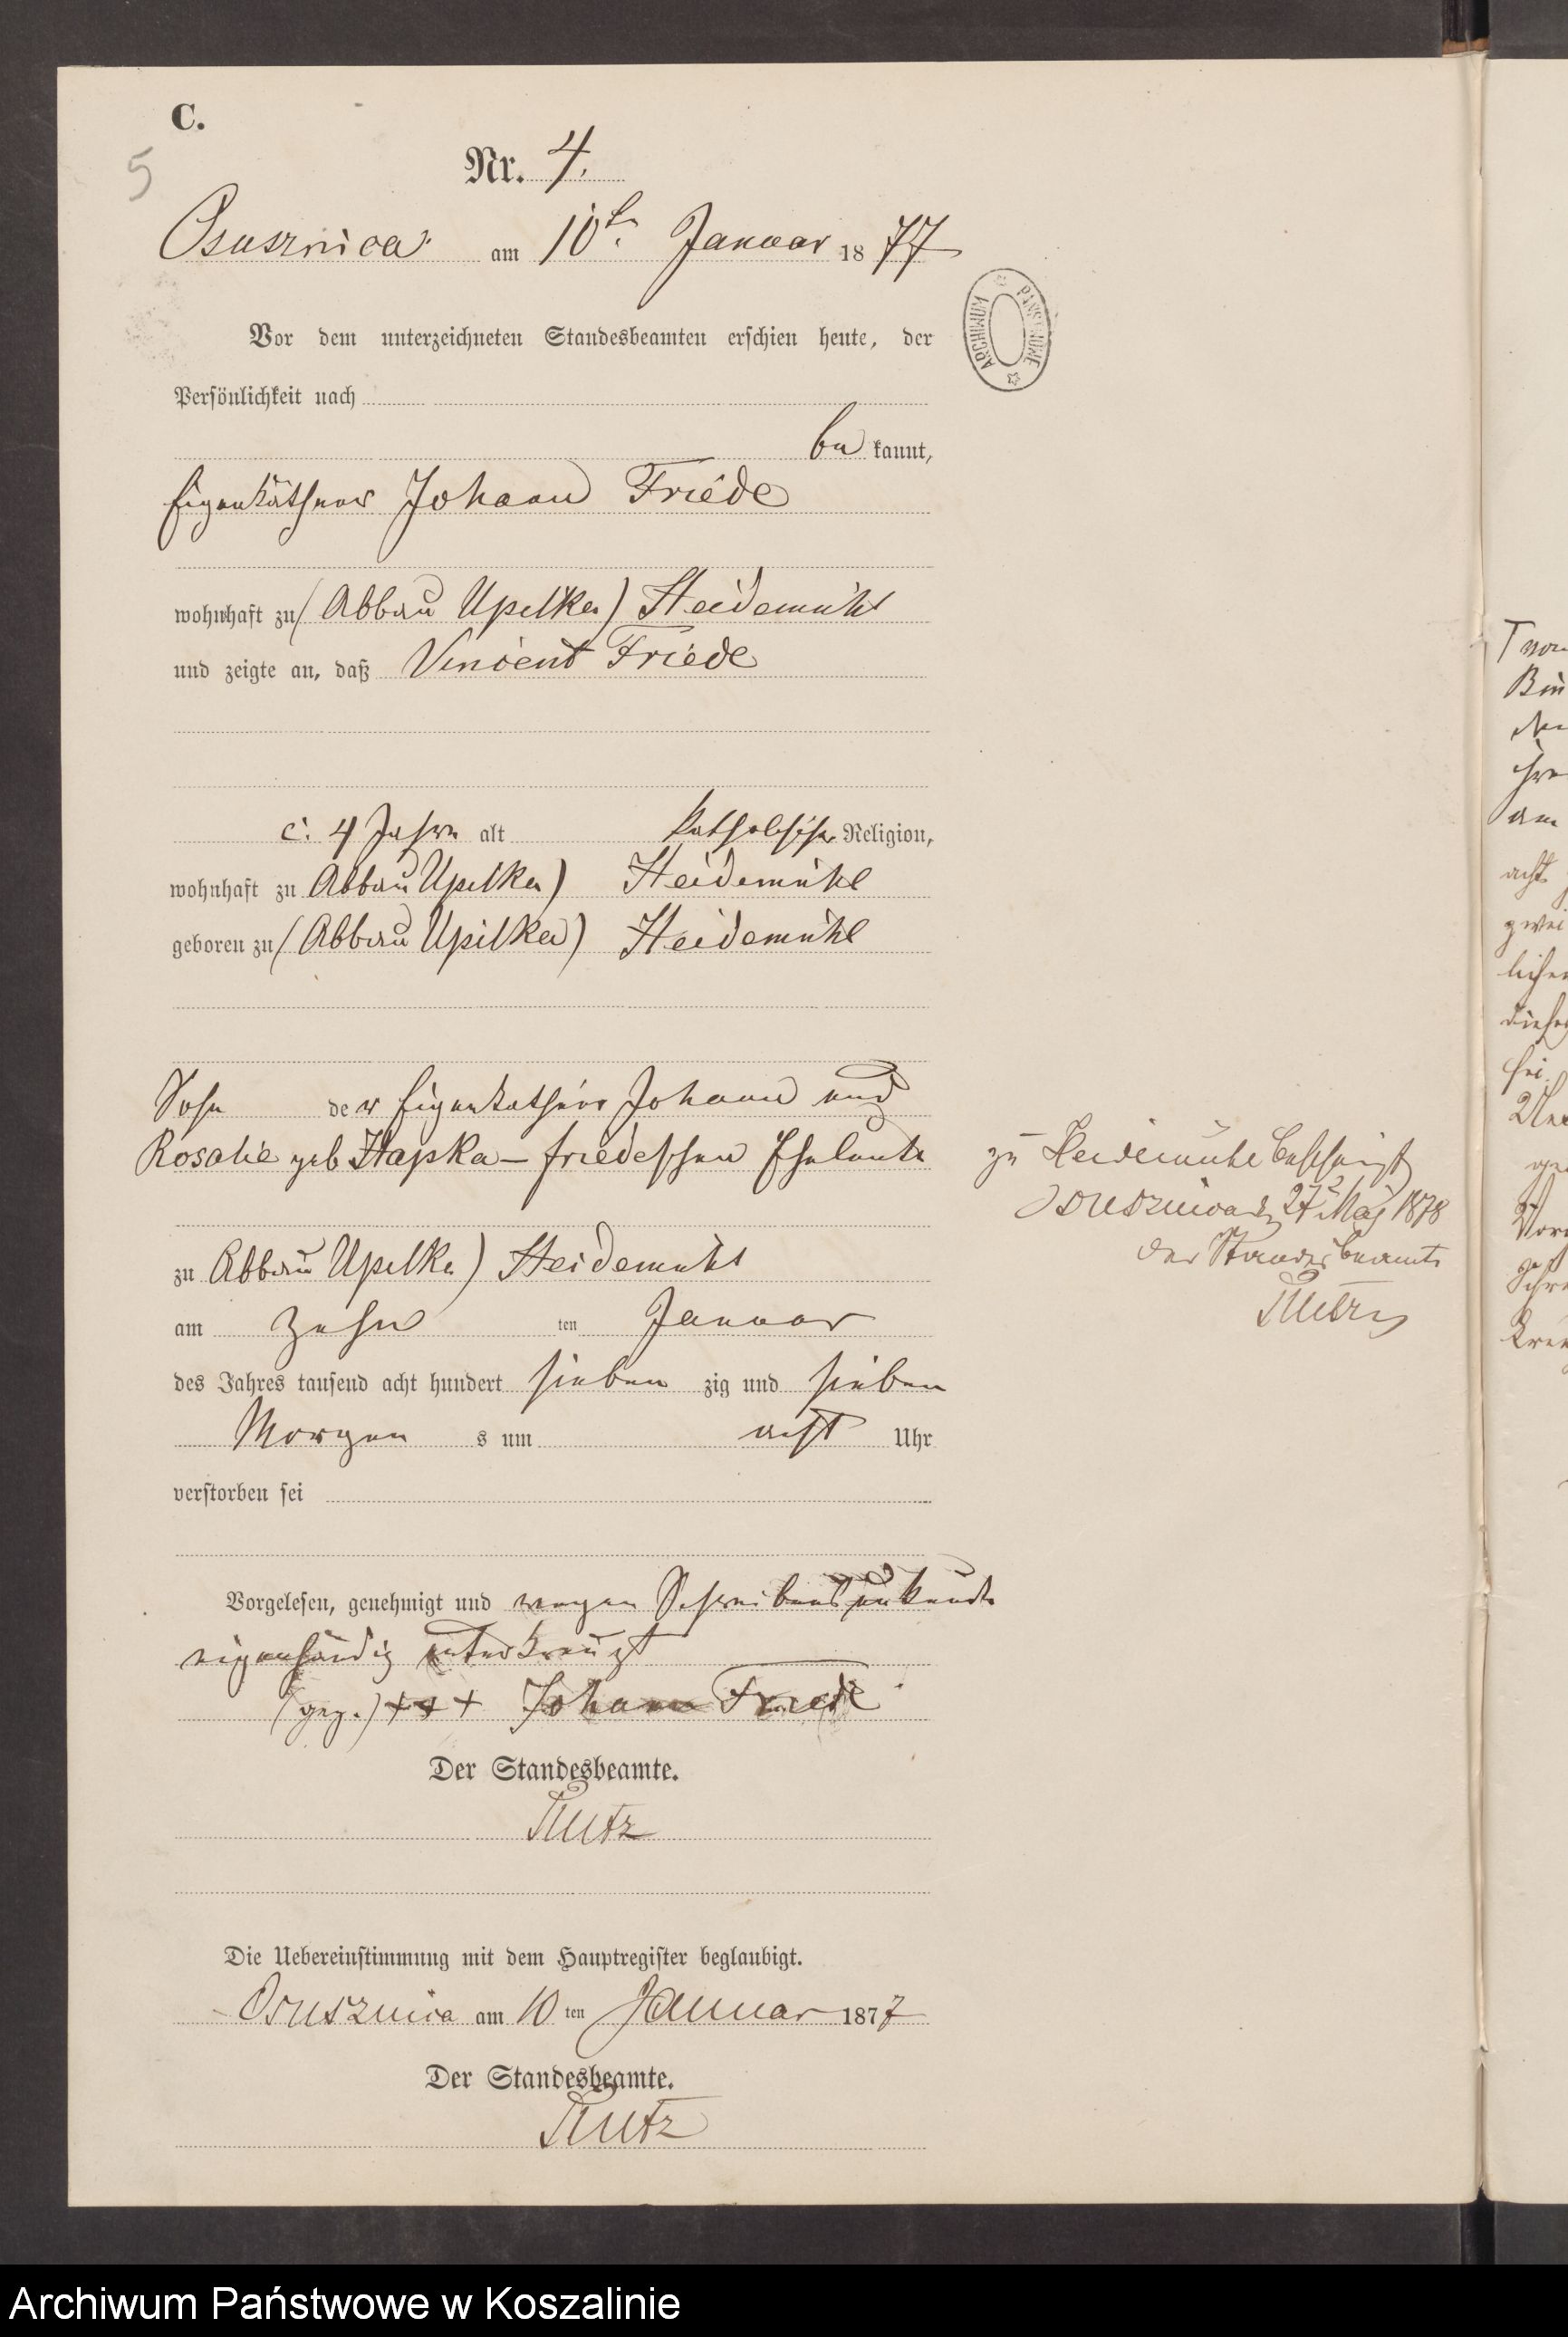 C.
5
Nr. 4.
Osusznica am 10t. Januar 1877
Vor dem unterzeichneten Standesbeamten erschien heute, der
Persönlichkeit nach
be kannt,
Eigenkäthner Johann Friede
wohnhaft zu (Abbau Upilka) Heidemühl
und zeigte an, daß Vincent Friede
c. 4 Jahre alt katholischer Religion,
wohnhaft zu Abbau Upilka) Heidemühl
geboren zu (Abbau Upilka) Heidemühl
Sohn der Eigenkathner Johann und
Rosalie geb Hapka – Friedeschen Eheleute
zu Abbau Upilka) Heidemühl
am zehn ten Januar
des Jahres tausend acht hundert sieben zig und sieben
Morgen s um acht Uhr
verstorben sei
Vorgelesen, genehmigt und wegen Schreibensunkunde
eigenhändig unterkreuzt
(gez.) +++ Johann Friede
Der Standesbeamte.
Kutz
Die Uebereinstimmung mit dem Hauptregister beglaubigt.
Osusznica am 10 ten Januar 1877
Der Standesbeamte.
Kutz
zu Heidemühl bescheinigt
Osusznica d. 27 Mai 1878
der Standesbeamte
ARCHIWUM PAŃSTWOWE
acht
zwei
am
Archiwum Państwowe w Koszalinie